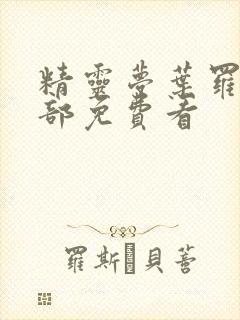 精靈夢葉羅
部免費看
羅斯·貝蒼